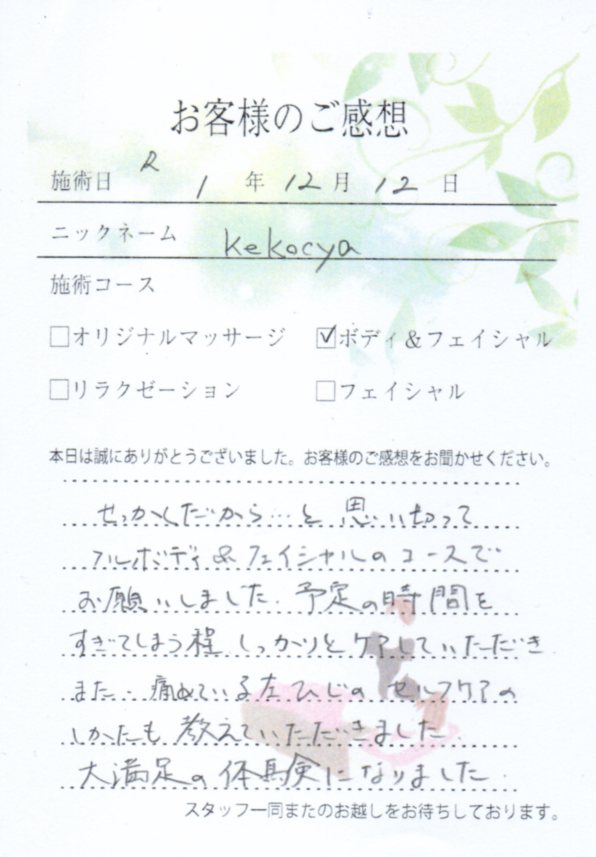 お客様のご感想
施術日 R 1 年 12月 12 日
ニックネーム kekocya
施術コース
□オリジナルマッサージ ☑ボディ＆フェイシャル
□リラクゼーション □フェイシャル
本日は誠にありがとうございました。お客様のご感想をお聞かせください。
せっかくだから…と 思い切って
フルボディ&フェイシャルのコースで
お願いしました. 予定の時間を
すぎてしまう程 しっかりとケアしていただき
また. 痛めている左ひじの セルフケアの
しかたも 教えていただきました
大満足の体験になりました.
スタッフ一同またのお越しをお待ちしております。